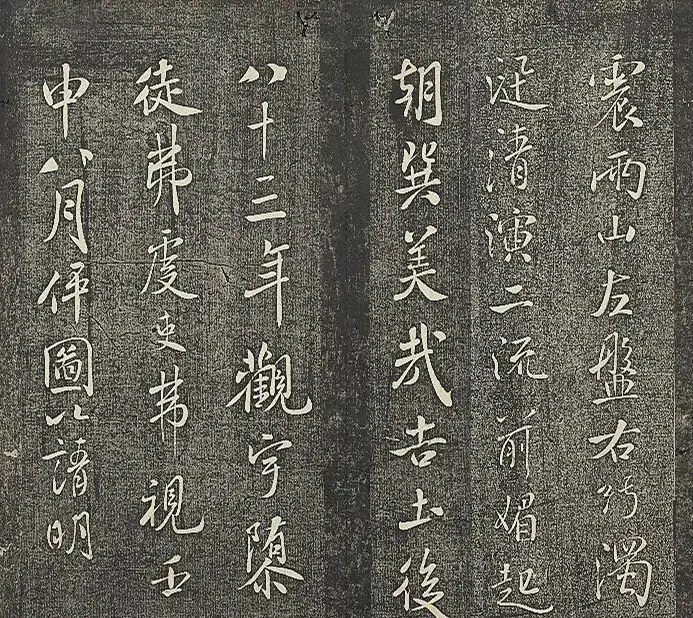 震兩山左盤右紆濁
涇清演二流前媚起
朝巽美哉吉土後
八十三年觀宇
徒弗處吏弗視壬
申八月伻圖以請明